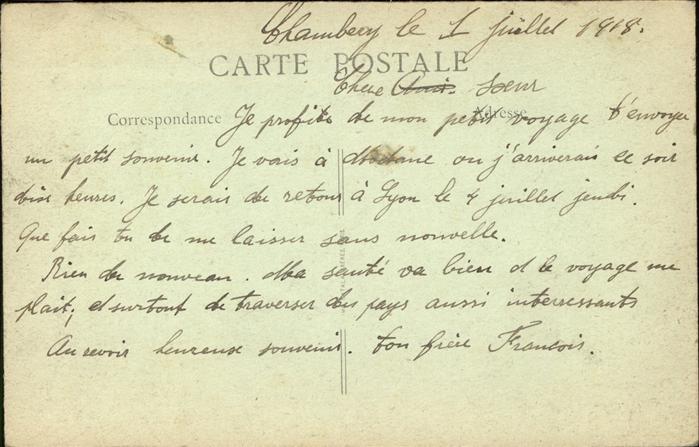 Chambery le 1 juillet 1918.
CARTE POSTALE
Chere Amie. Soeur
Correspondance
Adresse
Je profite de mon petit voyage t'envoyer
un petit souvenir. Je vais à Modane ou j'arriverais ce soir
dix heures. Je serais de retour à Lyon le 4 juillet jeudi.
Que fais tu de me laisser sans nouvelle.
Rien de nouveau. Ma santé va bien et le voyage me
plait; et surtout de traverser des pays aussi interressants
Au revoir heureuse souvenir. ton frère Francois.